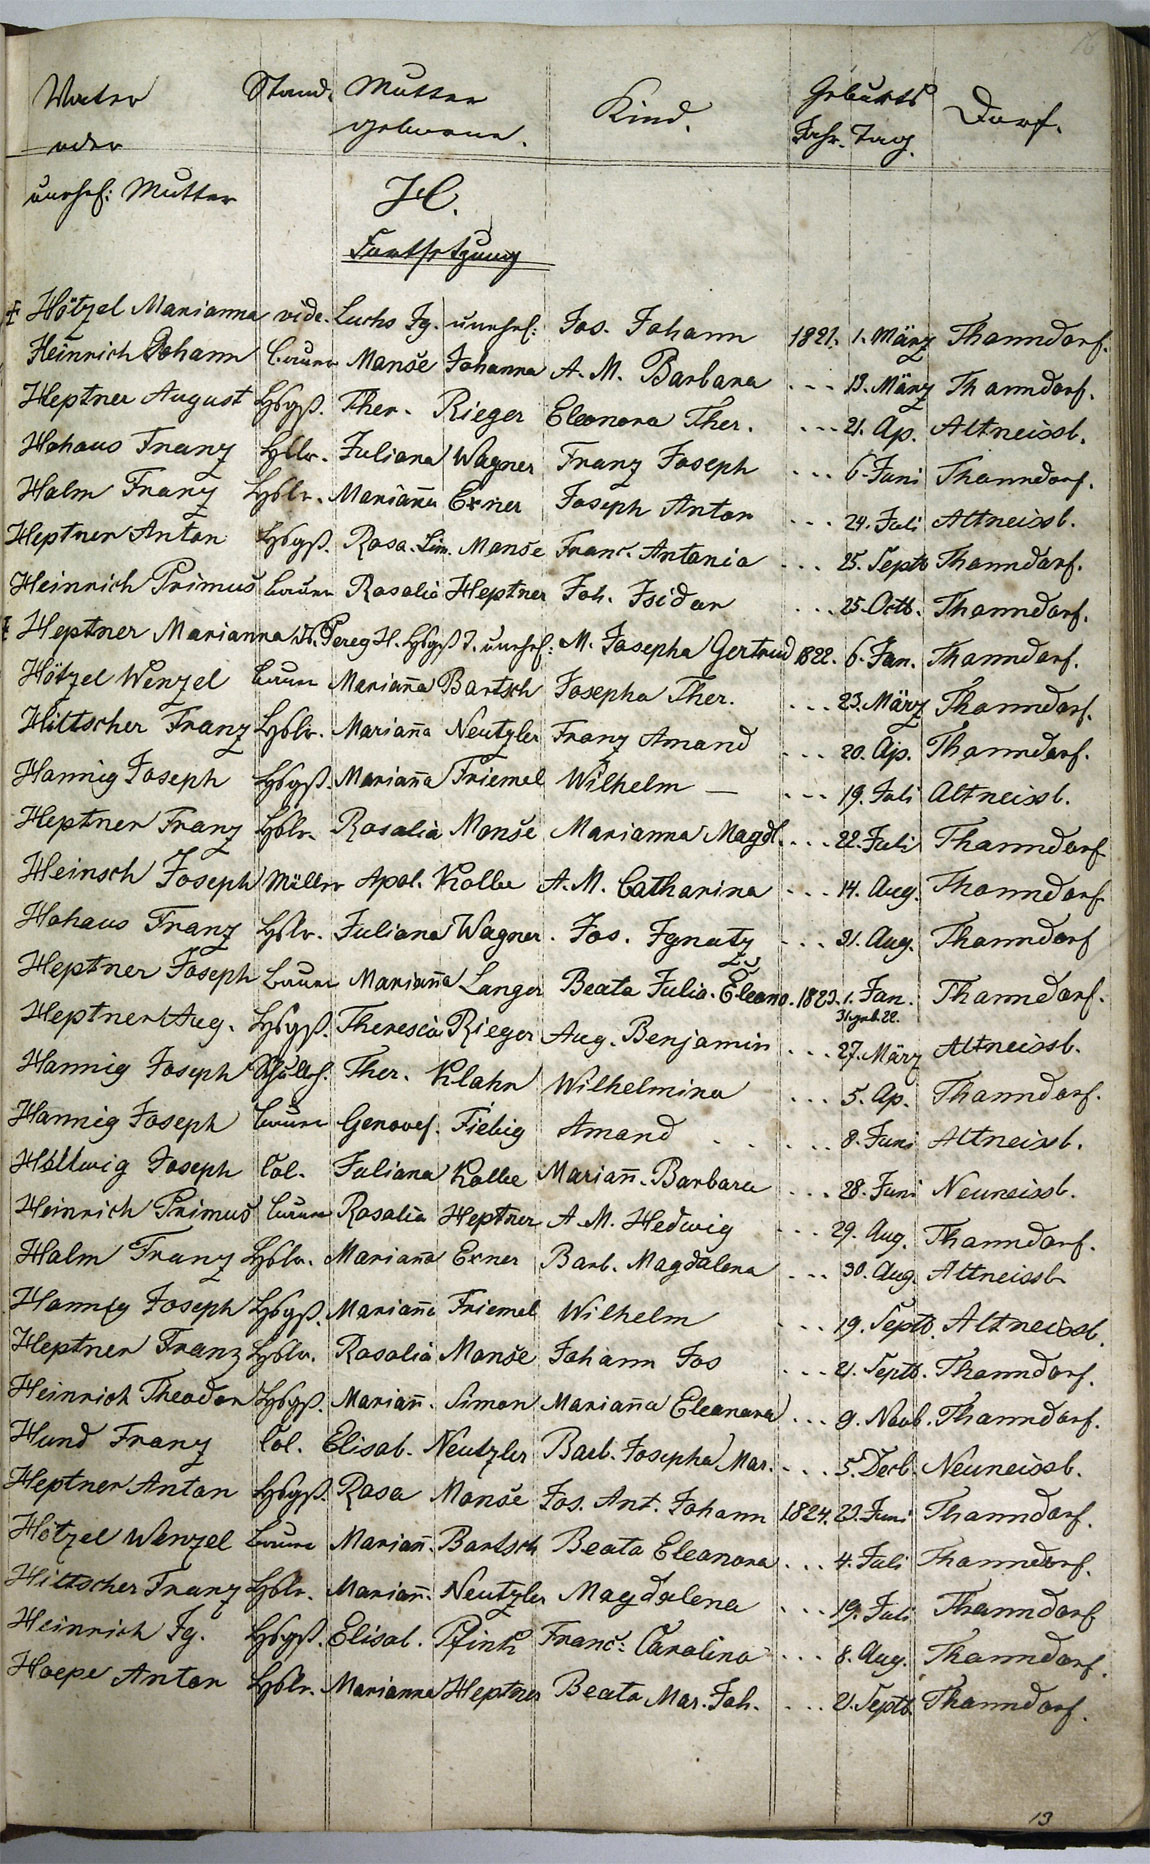 Vater Stand. Mutter Kind. Geburts Dorf.
oder geborne. Jahr. Tag.
unehel: Mutter H.
Fortsetzung
Hötzel Marianna vide. Luchs Ig. unehel: Jos. Johann 1821. 1. März Thanndorf.
Heinrich Johann Bauer Monse Johanna A. M. Barbara - - - 13. März Thanndorf.
Heptner August Hsgß. Ther. Rieger Eleonora Ther. - - - 21. Ap. Altneissb.
Hohaus Franz Hslr. Juliana Wagner Franz Joseph - - - 6. Juni Thanndorf.
Halm Franz Hslr. Mariaña Exner Joseph Anton - - - 24. Juli Altneissb.
Heptner Anton Hsgß. Rosa. Sim. Monse Franc. Antonia - - - 25. Septb Thanndorf.
Heinrich Primus Bauer Rosalia Heptner Joh. Isidor - - - 25. Octb. Thanndorf.
Heptner Marianna H. Hsgß T. unehel: M. Josepha Gertrud 1822. 6. Jan. Thanndorf.
Hötzel Wenzel Bauer Mariaña Bartsch Josepha Ther. - - - 23. März Thanndorf.
Hittscher Franz Hslr. Mariaña Neutzler Franz Amand - - - 20. Ap. Thanndorf.
Hannig Joseph Hsgß. Mariaña Friemel Wilhelm — - - - 19. Juli Altneissb.
Heptner Franz Hslr. Rosalia Monse Marianna Magdl. - - - 22. Juli Thanndorf
Heinsch Joseph Müller Apol. Kolbe A. M. Catharina - - - 14. Aug. Thanndorf
Hohaus Franz Hslr. Juliana Wagner. Jos. Ignatz - - - 31. Aug. Thanndorf
Heptner Joseph Bauer Mariaña Langer Beata Julia. Eleono. 1823. 1. Jan. Thanndorf.
31. geb. 22.
Heptner Aug. Hsgß. Theresia Rieger Aug. Benjamin - - - 27. März Altneissb.
Hannig Joseph Schullh. Ther. Klahr Wilhelmina - - - 5. Ap. Thanndorf.
Hannig Joseph Bauer Genovef. Fiebig Amand - - - - - 8. Juni Altneissb.
Hollwig Joseph Col. Juliana Kolbe Mariañ. Barbara - - - 28. Juni Neuneissb.
Heinrich Primus Bauer Rosalia Heptner A. M. Hedwig - - - 29. Aug. Thanndorf.
Halm Franz Hslr. Mariana Exner Barb. Magdalena - - - 30. Aug. Altneissb
Hannig Joseph Hsgß. Mariaña Friemel Wilhelm - - - 19. Septb. Altneissb.
Heptner Franz Hslr. Rosalia Monse Johann Jos - - - 21. Septb. Thanndorf.
Heinrich Theodor Hsgß. Mariañ. Simon Mariaña Eleonora - - - 9. Novb. Thanndorf.
Hund Franz Col. Elisab. Neutzler Barb. Josepha Mar. - - - 5. Decb. Neuneissb.
Heptner Anton Hsgß. Rosa Monse Jos. Ant. Johann 1824. 23. Juni Thanndorf.
Hötzel Wenzel Bauer Mariañ. Bartsch Beata Eleonora - - - 4. Juli Thanndorf.
Hittscher Franz Hslr. Mariañ. Neutzler Magdalena - - - 19. Juli Thanndorf
Heinrich Ig. Hsgß. Elisab. Franc: Carolina - - - 8. Aug. Thanndorf.
Hoepe Anton Hslr. Marianna Heptner Beata Mar. Joh. - - - 21. Septb. Thanndorf.
13